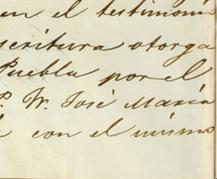 en el testimonio
scritura otorga
Puebla por el
P. W. José María
con el mismo